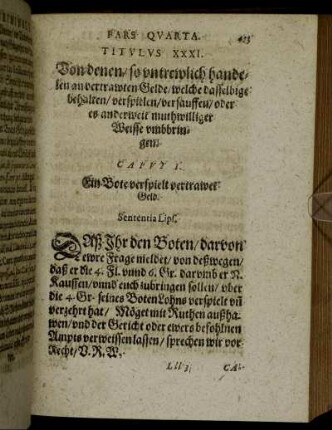 PARS QVARTA. 423
TITVLVS XXXI.
Von denen/ so vntrewlich hande-
len an vertrawten Gelde/ welche dasselbige
behalten/ verspielen/ versauffen/ oder
es anderweit muthwilliger
Weisse vmbbrin-
gen.
CAPVT I.
Ein Bote verspielt vertrawet
Geld.
Sententia Lips.
DAß Ihr den Boten/ darvon
ewre Frage meldet/ von deßwegen/
daß er die 4. Fl. vnnd 6. Gr. darumb er N.
Kauffen/ vnnd euch zubringen sollen/ ober
die 4. Gr. seines BotenLohns verspielt vñ
verzehrt hat/ Möget mit Ruthen außha-
wen/ vnd der Gericht oder ewers befohlnen
Ampts verweissen lassen/ sprechen wir vor
Recht/ V. R. W.
Lll 3 CA-